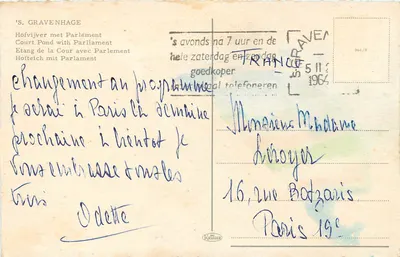 'S. GRAVENHAGE
Hofvijver met Parlement
Court Pond with Parliament
Etang de la Cour avec Parlement
Hofteich mit Parlament
's avonds na 7 uur en de
hele zaterdag en zondag
goedkoper
telefoneren
'S GRAVEN
5 II
1964
FRANCE
changement au programme
je serai à Paris la semaine
prochaine à bientôt je
vous embrasse tous les
trois
Odette
Monsieur Madame
Leroyer
16, rue Botzaris
Paris 19e